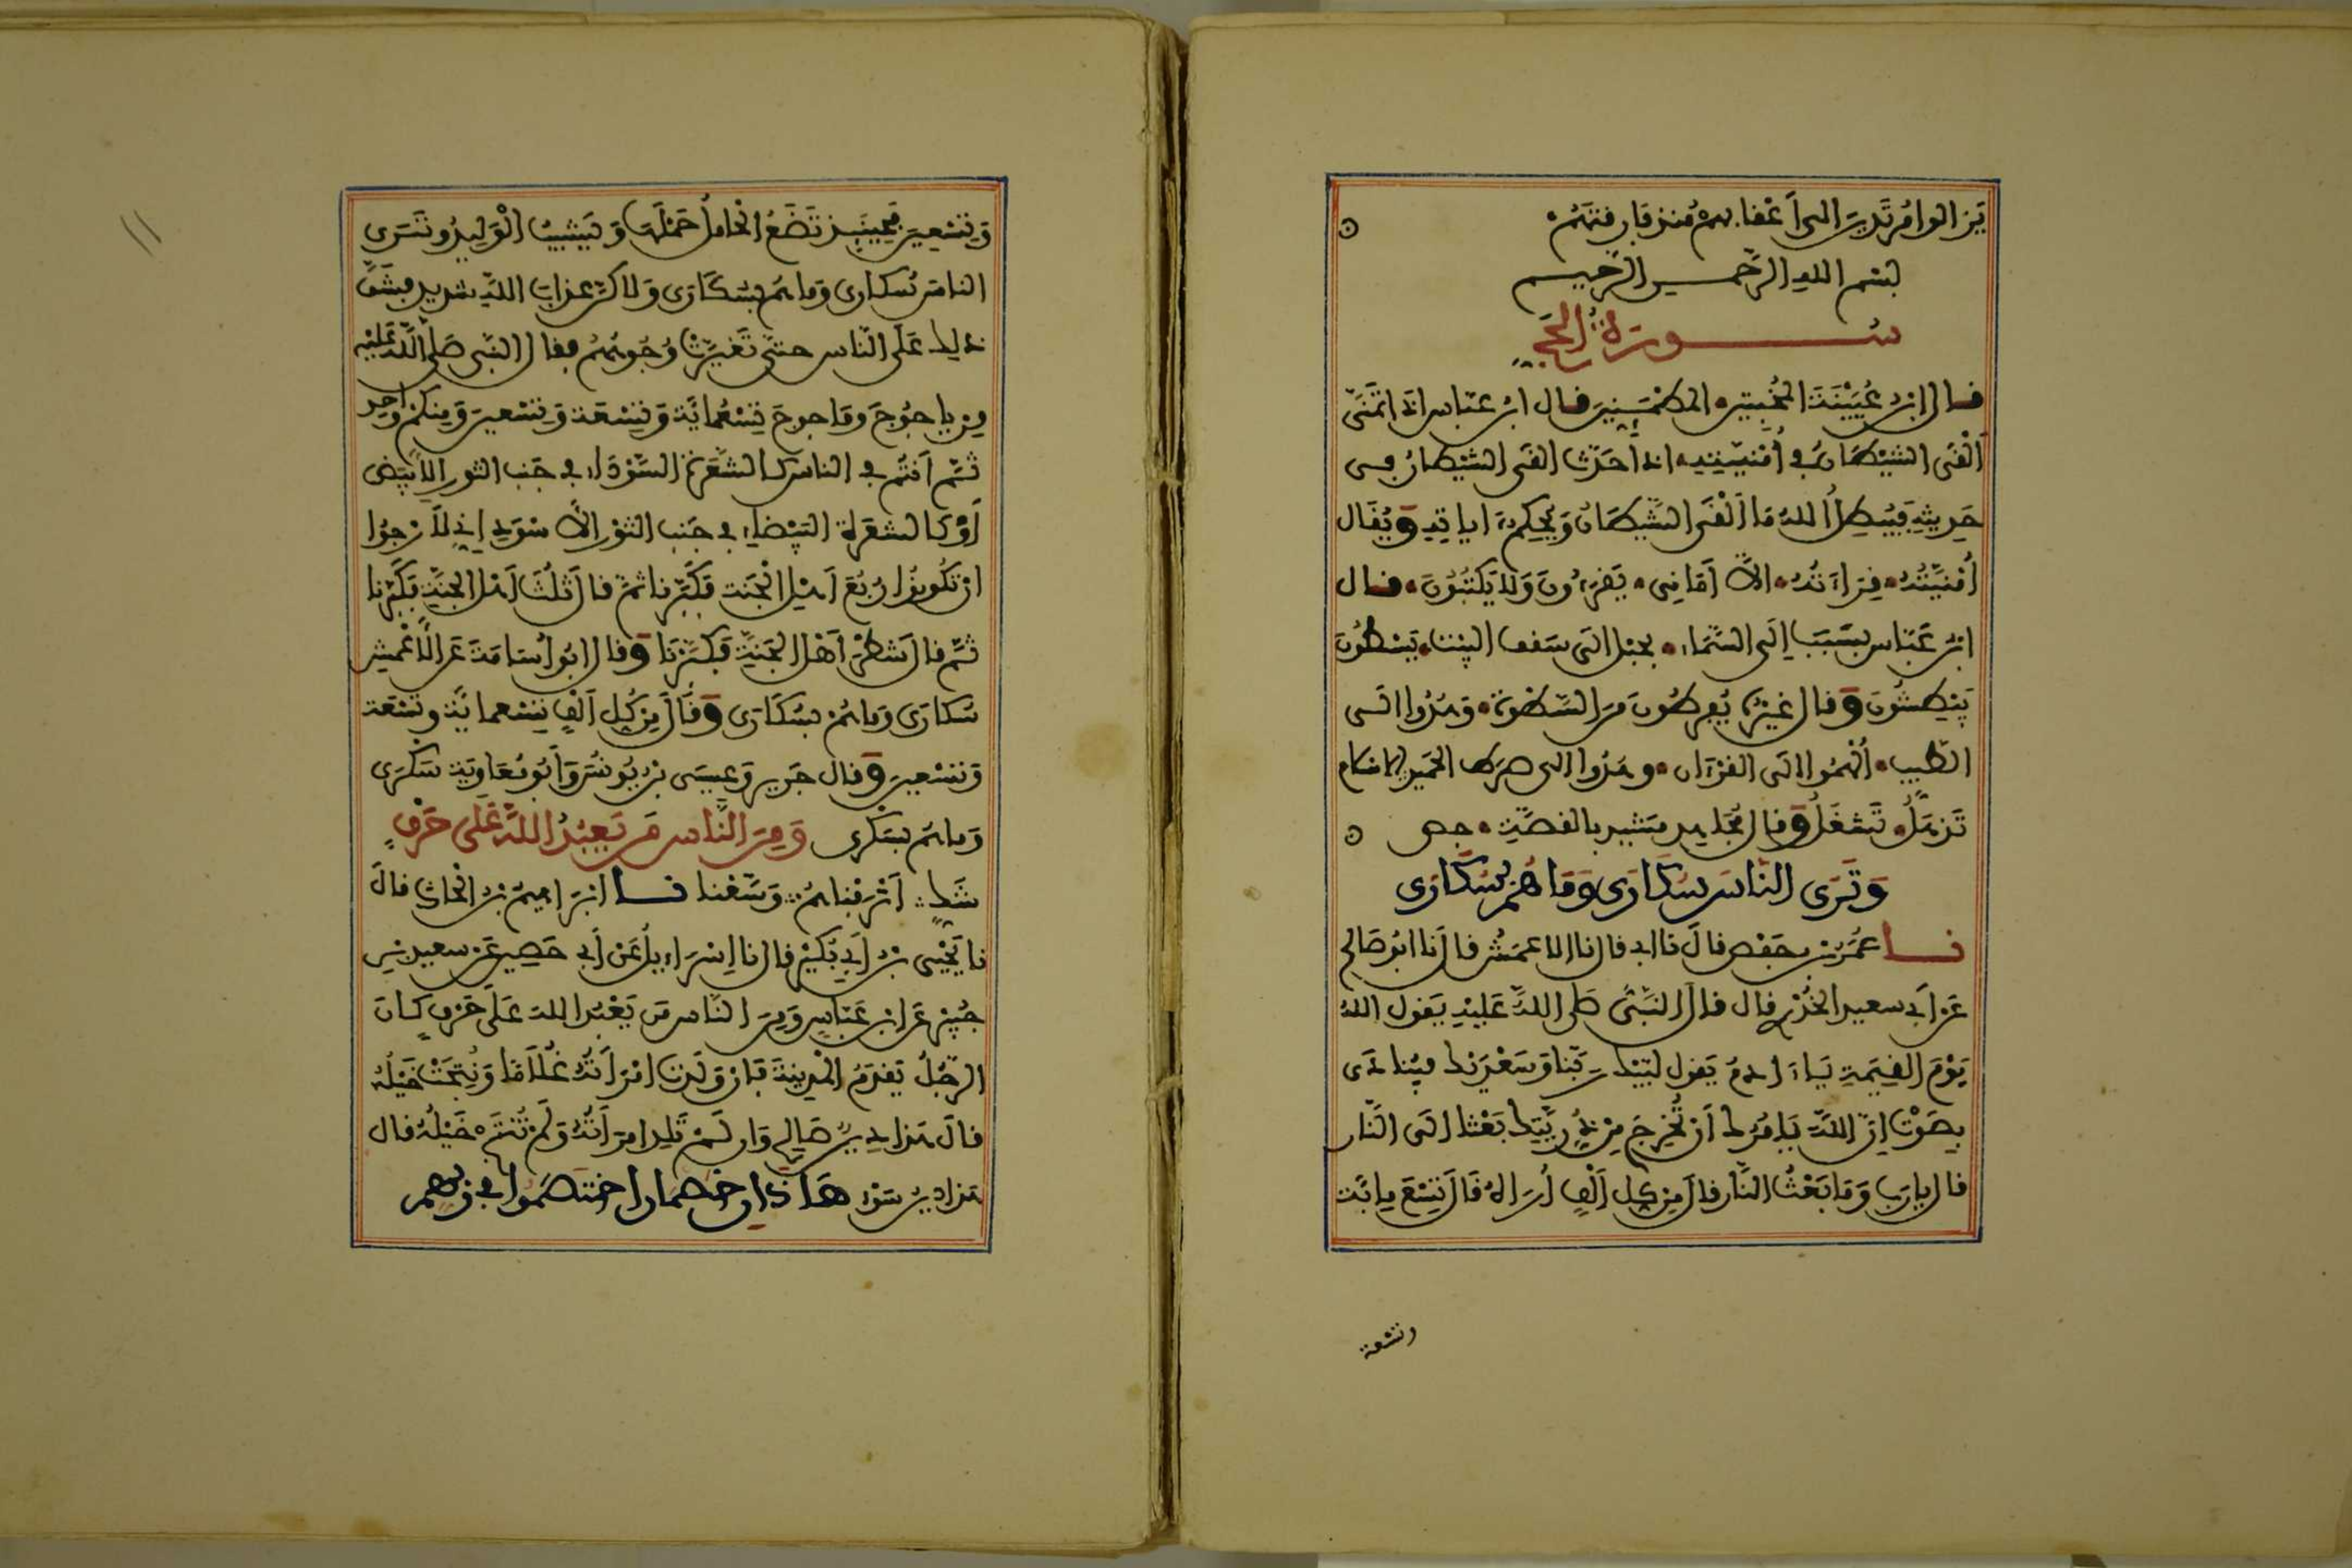 يزالوا مرتدين الى أعقابهم منذ فارقتهم
بسم الله الرحمن الرحيم
سورة الحج
قال ابن عيينة المخبتين المطمئنين قال ابن عباس اذا تمنى
ألقى الشيطان في أمنيته اذا حدث ألقى الشيطان في
حديثه فيبطل الله ما ألقى الشيطان ويحكم ءاياته ويقال
أمنيته قراءته الا أماني يقرءون ولا يكتبون قال
ابن عباس بسبب إلى السماء بحبل الى سقف البيت يسطون
يبطشون وقال غيره يفرطون من السطوة وهدوا الى
الطيب ألهموا الى القرءان وهدوا الى صراط الحميد الاسلام
تذهل تشغل وقال مجاهد مشيد بالقصة جص
وترى الناس سكارى وما هم بسكارى
نا عمر بن حفص قال نا ابي قال نا الاعمش قال نا ابو صالح
عن أبي سعيد الخدري قال قال النبي صلى الله عليه يقول الله
يوم القيمة يا ءادم يقول لبيك ربنا وسعديك فينادى
بصوت إن الله يامرك أن تخرج من ذريتك بعثا الى النار
قال يا رب وما بعث النار قال من كل ألف أراه قال تسع مائة
وتسعة
وتسعين فحينئذ تضع الحامل حملها ويشيب الوليد وترى
الناس سكارى وما هم بسكارى ولاكن عذاب الله شديد فشق
ذلك على الناس حتى تغيرت وجوههم فقال النبي صلى الله عليه
من ياجوج وماجوج تسعمائة وتسعة وتسعين ومنكم واحد
ثم أنتم في الناس كالشعرة السوداء في جنب الثور الابيض
أو كالشعرة البيضاء في جنب الثور الاسود إني لأرجوا
ان تكونوا ربع أهل الجنة فكبرنا ثم قال ثلث أهل الجنة فكبرنا
ثم قال شطر أهل الجنة فكبرنا وقال ابو أسامة عن الأعمش
سكارى وما هم بسكارى وقال من كل ألف تسعمائة وتسعة
وتسعين وقال جرير وعيسى بن يونس وأبو معاوية سكرى
وما هم بسكرى ومن الناس من يعبد الله على حرف
شك أترفناهم وسعنا نا ابراهيم بن الحارث قال
نا يحيى بن أبي بكير قال نا إسراءيل عن أبي حصين عن سعيد بن
جبير عن ابن عباس ومن الناس من يعبد الله على حرف كان
الرجل يقدم المدينة فان ولدت امرأته غلاما ونتجت خيله
قال هذا دين صالح وان لم تلد امرأته ولم تنتج خيله قال
هذا دين سوء هاذان خصمان اختصموا في ربهم